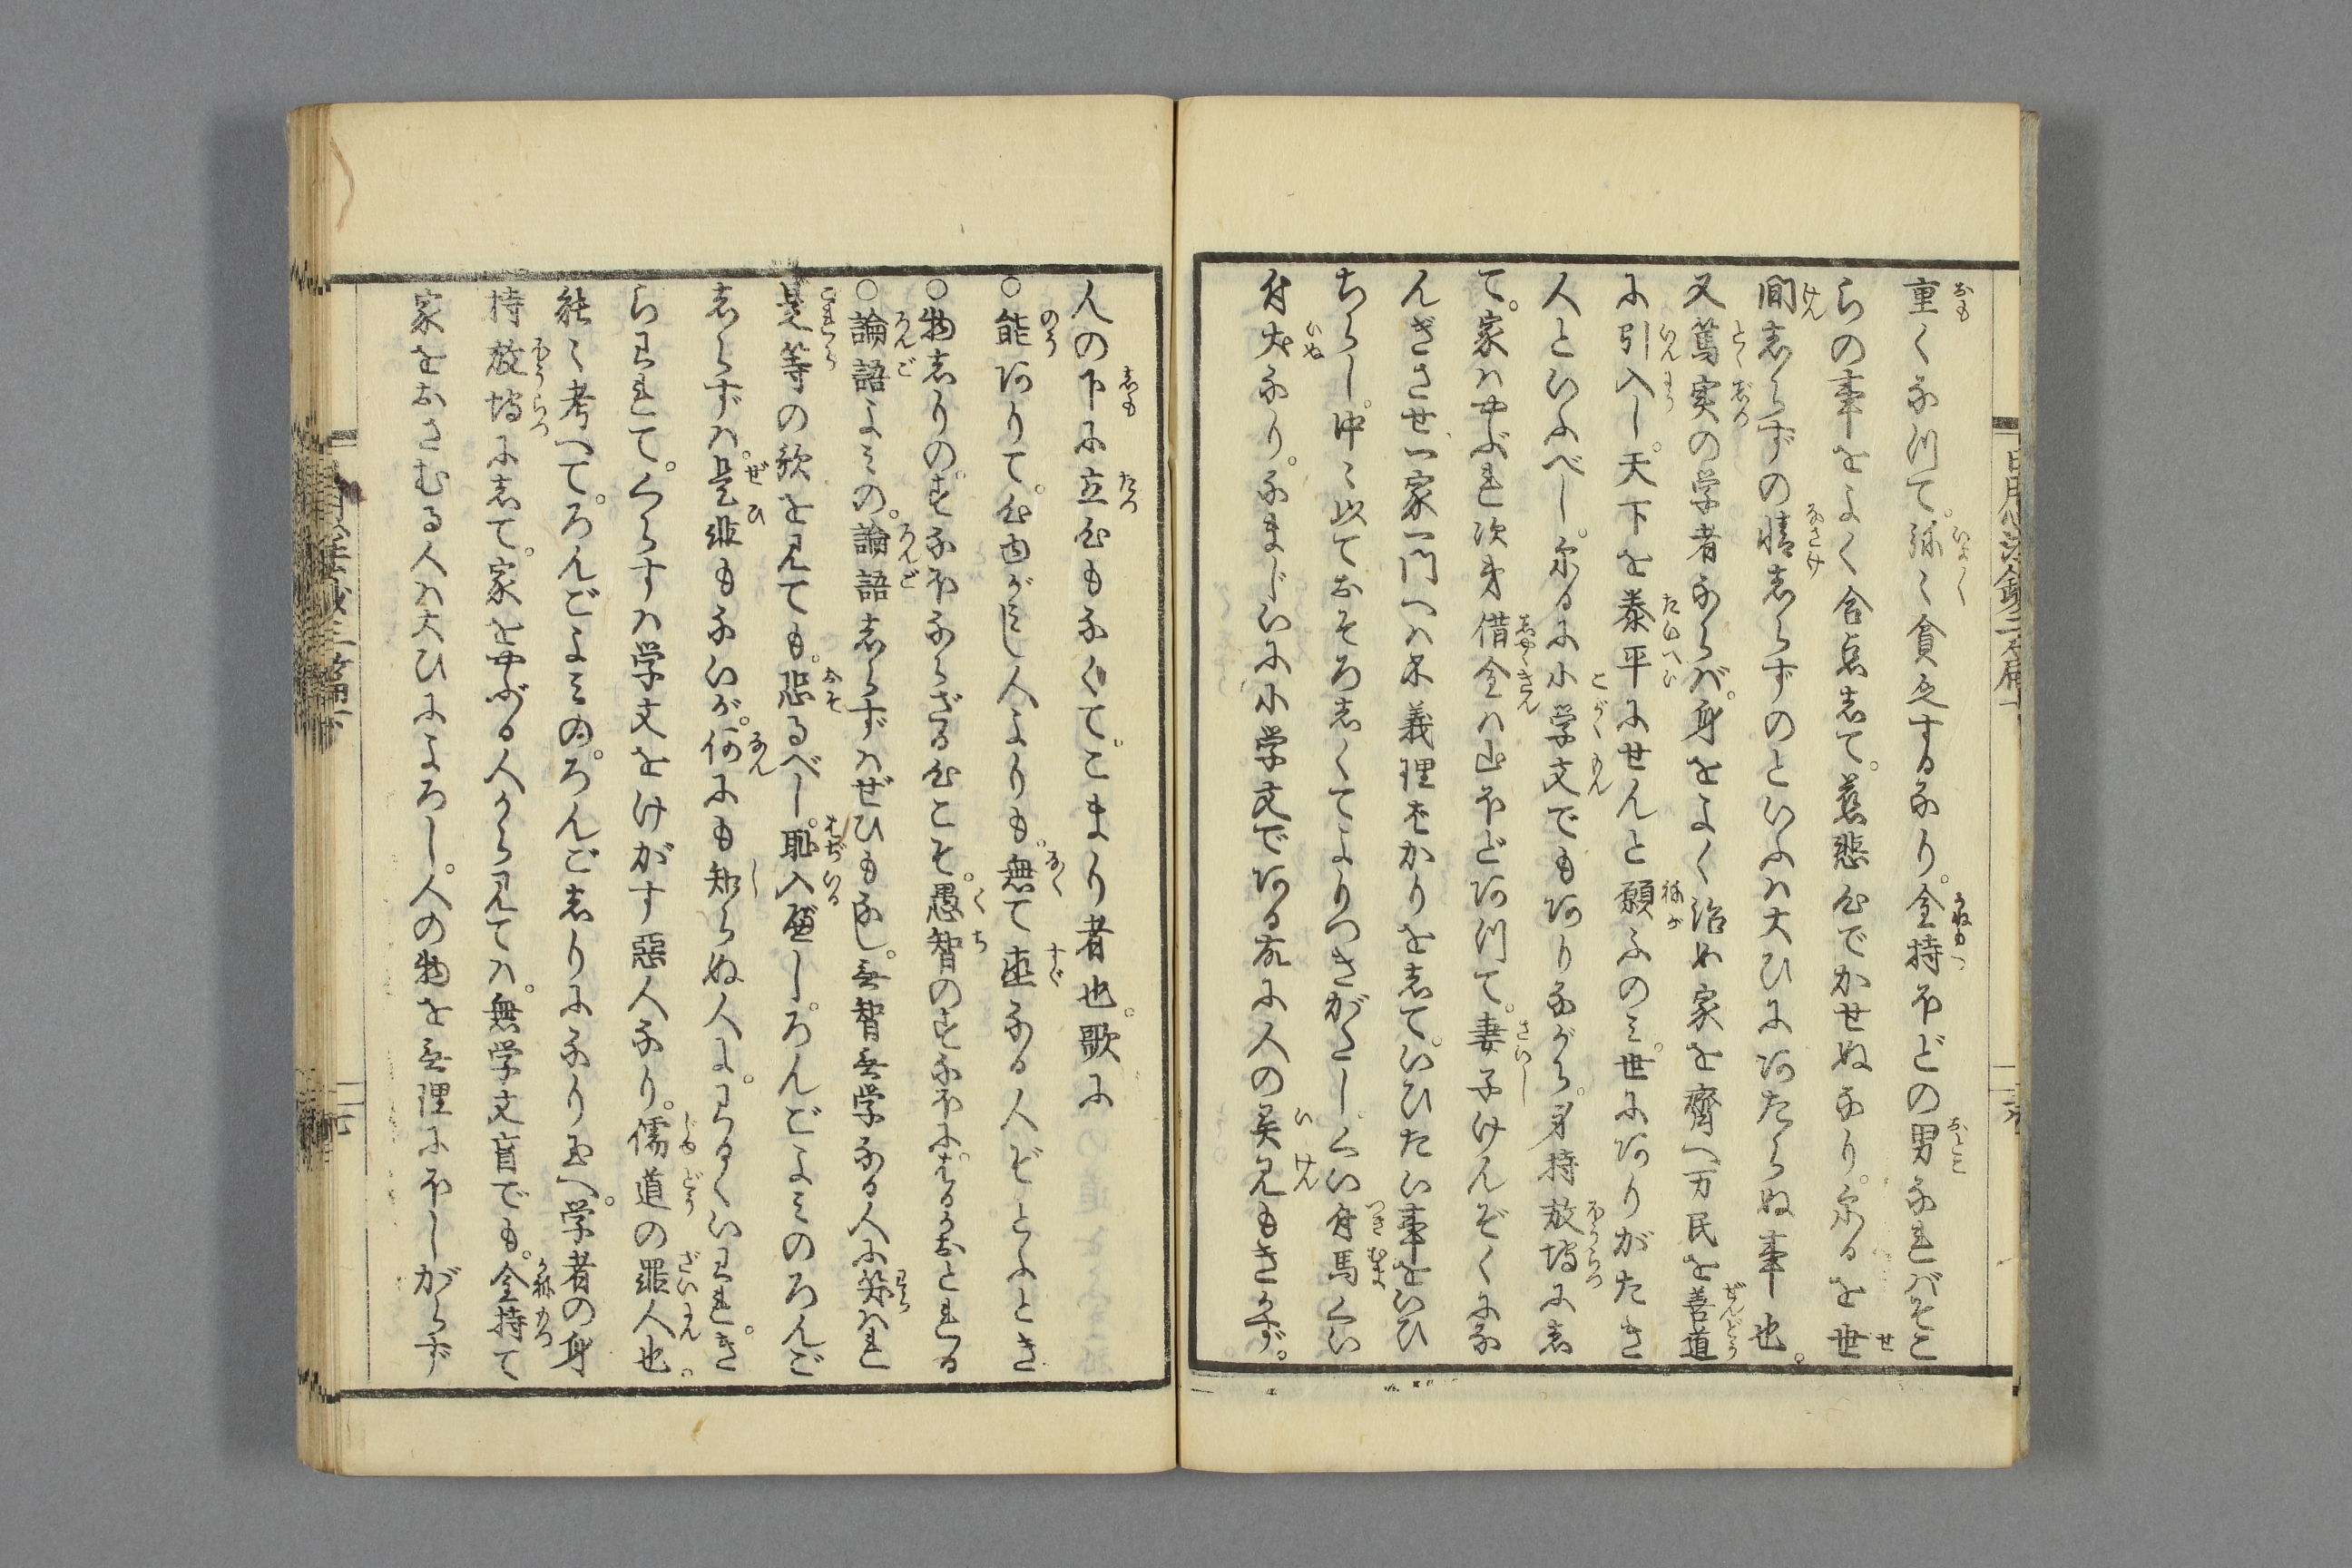 重くなつて。弥々貧乏するなり。金持ほどの男なればそこ
らの事をよく合点して。慈悲心でかせぬなり。尓るを世
間志らずの情志らずのといふハ大ひにあたらぬ事也。
又篤実の学者ならバ。身をよく治め家を齊へ万民を善道
に引入し。天下を泰平にせんと願ふのミ。世にありがたき
人といふべし。尓るに小学文でもありながら。身持放埓に志
て。家ハやぶれ次第借金ハ山ほどあつて。妻子けんぞくにな
んぎさせ、一家一門へハ不義理ばかりを志て。いひたい事をいひ
ちらし。中々以ておそろ志くてよりつきがたし。くい付馬くい
付犬なり。なまじいに小学文である故に人の異見もきかず。
人の下に立心もなくて。こまり者也。歌に
○能ありて。心のまがらし人よりも。無て直なる人ぞとふとき
○物志りの。すなほならざる心こそ。愚智のすなほにはるかおとれる
○論語よミの。論語志らずハぜひもなし。無智無学なる人に笑ハれ
是等の歌を見ても。恐るべし。恥入べし。ろんごよミのろんご
志らずハ。是非もないが。何にも知らぬ人に。わるくいわれ。き
らわれて。くらすハ学文をけがす悪人なり。儒道の罪人也。
能々考へて。ろんごよミの。ろんご志りになり玉へ。学者の身
持放埓に志て。家をやぶる人から見てハ。無学文盲でも。金持て
家をおさむる人ハ大ひによろし。人の物を無理にほしがらず